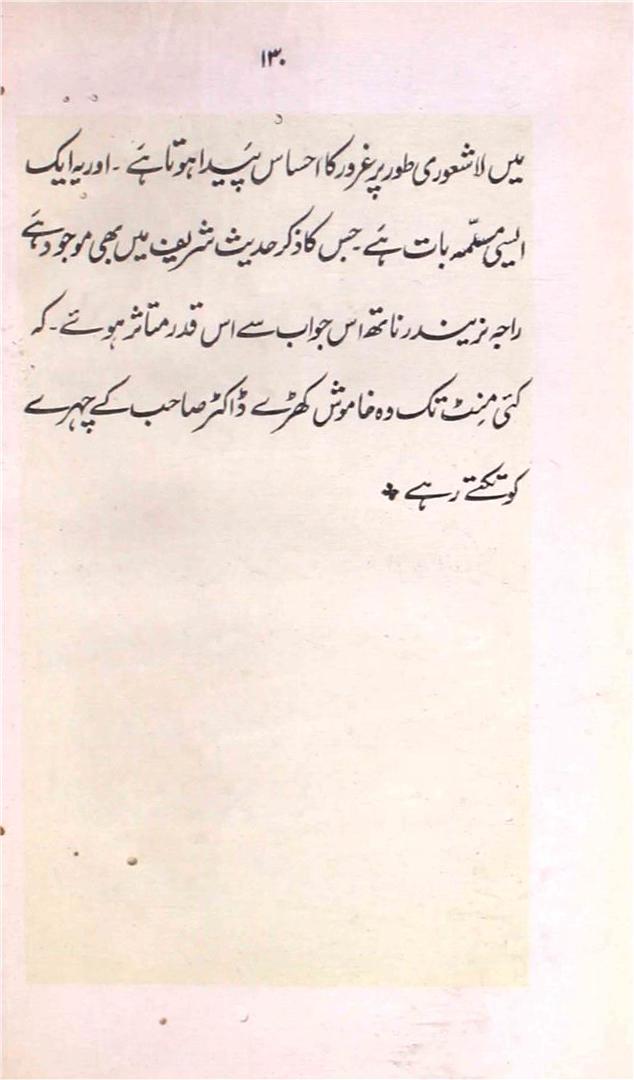 ۱۳۰
میں لاشعوری طور پر غرور کا احساس پَیدا ہوتا ہَے ۔ اور یہ ایک
ایسی مسلّمہ بات ہَے ۔ جس کا ذکر حدیث شریف میں بھی موجود ہَے
راجہ نریندر ناتھ اس جواب سے اس قدر متاثر ہوئے ۔ کہ
کئی مِنٹ تک وہ خاموش کھڑے ڈاکٹر صاحب کے چہرے
کو تکتے رہے ❖